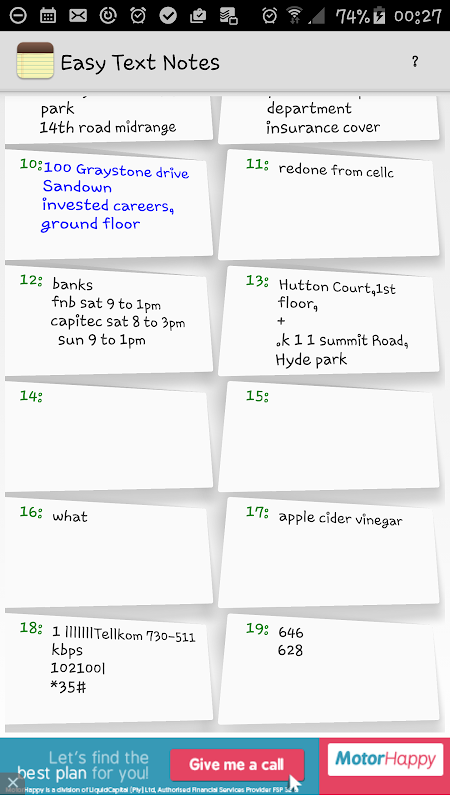 74% 00:27
Easy Text Notes ?
park
14th road midrange
department
insurance cover
10: 100 Graystone drive
Sandown
invested careers,
ground floor
11: redone from cellc
12: banks
fnb sat 9 to 1pm
capitec sat 8 to 3pm
sun 9 to 1pm
13: Hutton Court,1st
floor,
+
.k 1 1 summit Road,
Hyde park
14:
15:
16: what
17: apple cider vinegar
18: 1 lllllllTellkom 730-511
kbps
102100l
*35#
19: 646
628
Let's find the
best plan for you!
Give me a call
MotorHappy
MotorHappy is a division of LiquidCapital (Pty) Ltd, Authorised Financial Services Provider FSP